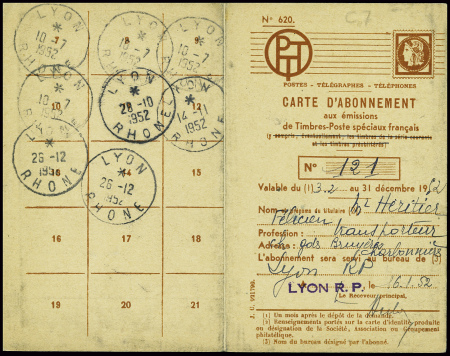 LYON
*
10-7
1952
RHONE
LYON
*
10-7
1952
RHONE
LYON
*
10-7
1952
LYON
*
10-7
1952
RHONE
LYON
*
28-10
1952
RHONE
LYON
*
14-11
1952
RHONE
LYON
*
26-12
1952
RHONE
LYON
*
26-12
1952
RHONE
15
16
17
18
19
20
21
N° 620.
PTT
POSTES - TÉLÉGRAPHES - TÉLÉPHONES
CARTE D'ABONNEMENT
aux émissions
de Timbres-Poste spéciaux français
(y compris, éventuellement, les timbres de la série courante
et les timbres préoblitérés)
N° 121
Valable du (1) 3.2 au 31 décembre 1952
Nom et prénoms du titulaire (2) L'Héritier
Félicien
Profession: transporteur
Adresse: ch. gds Bruyères Charbonnières
L'abonnement sera servi au bureau de (3)
Lyon RP
LYON R.P. le 16.1.52
Le Receveur principal,
(1) Un mois après le dépôt de la demande.
(2) Renseignements portés sur la carte d'identité produite
ou désignation de la Société, Association ou Groupement
philatélique.
(3) Nom du bureau désigné par l'abonné.